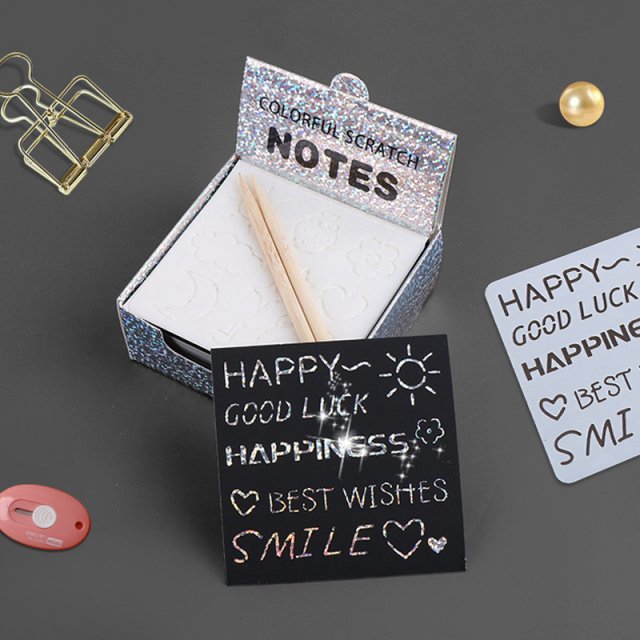 COLORFUL SCRATCH
NOTES
HAPPY
GOOD LUCK
HAPPINESS
BEST WISHES
SMILE
HAPPY
GOOD LUCK
HAPPINE
BEST
SMI